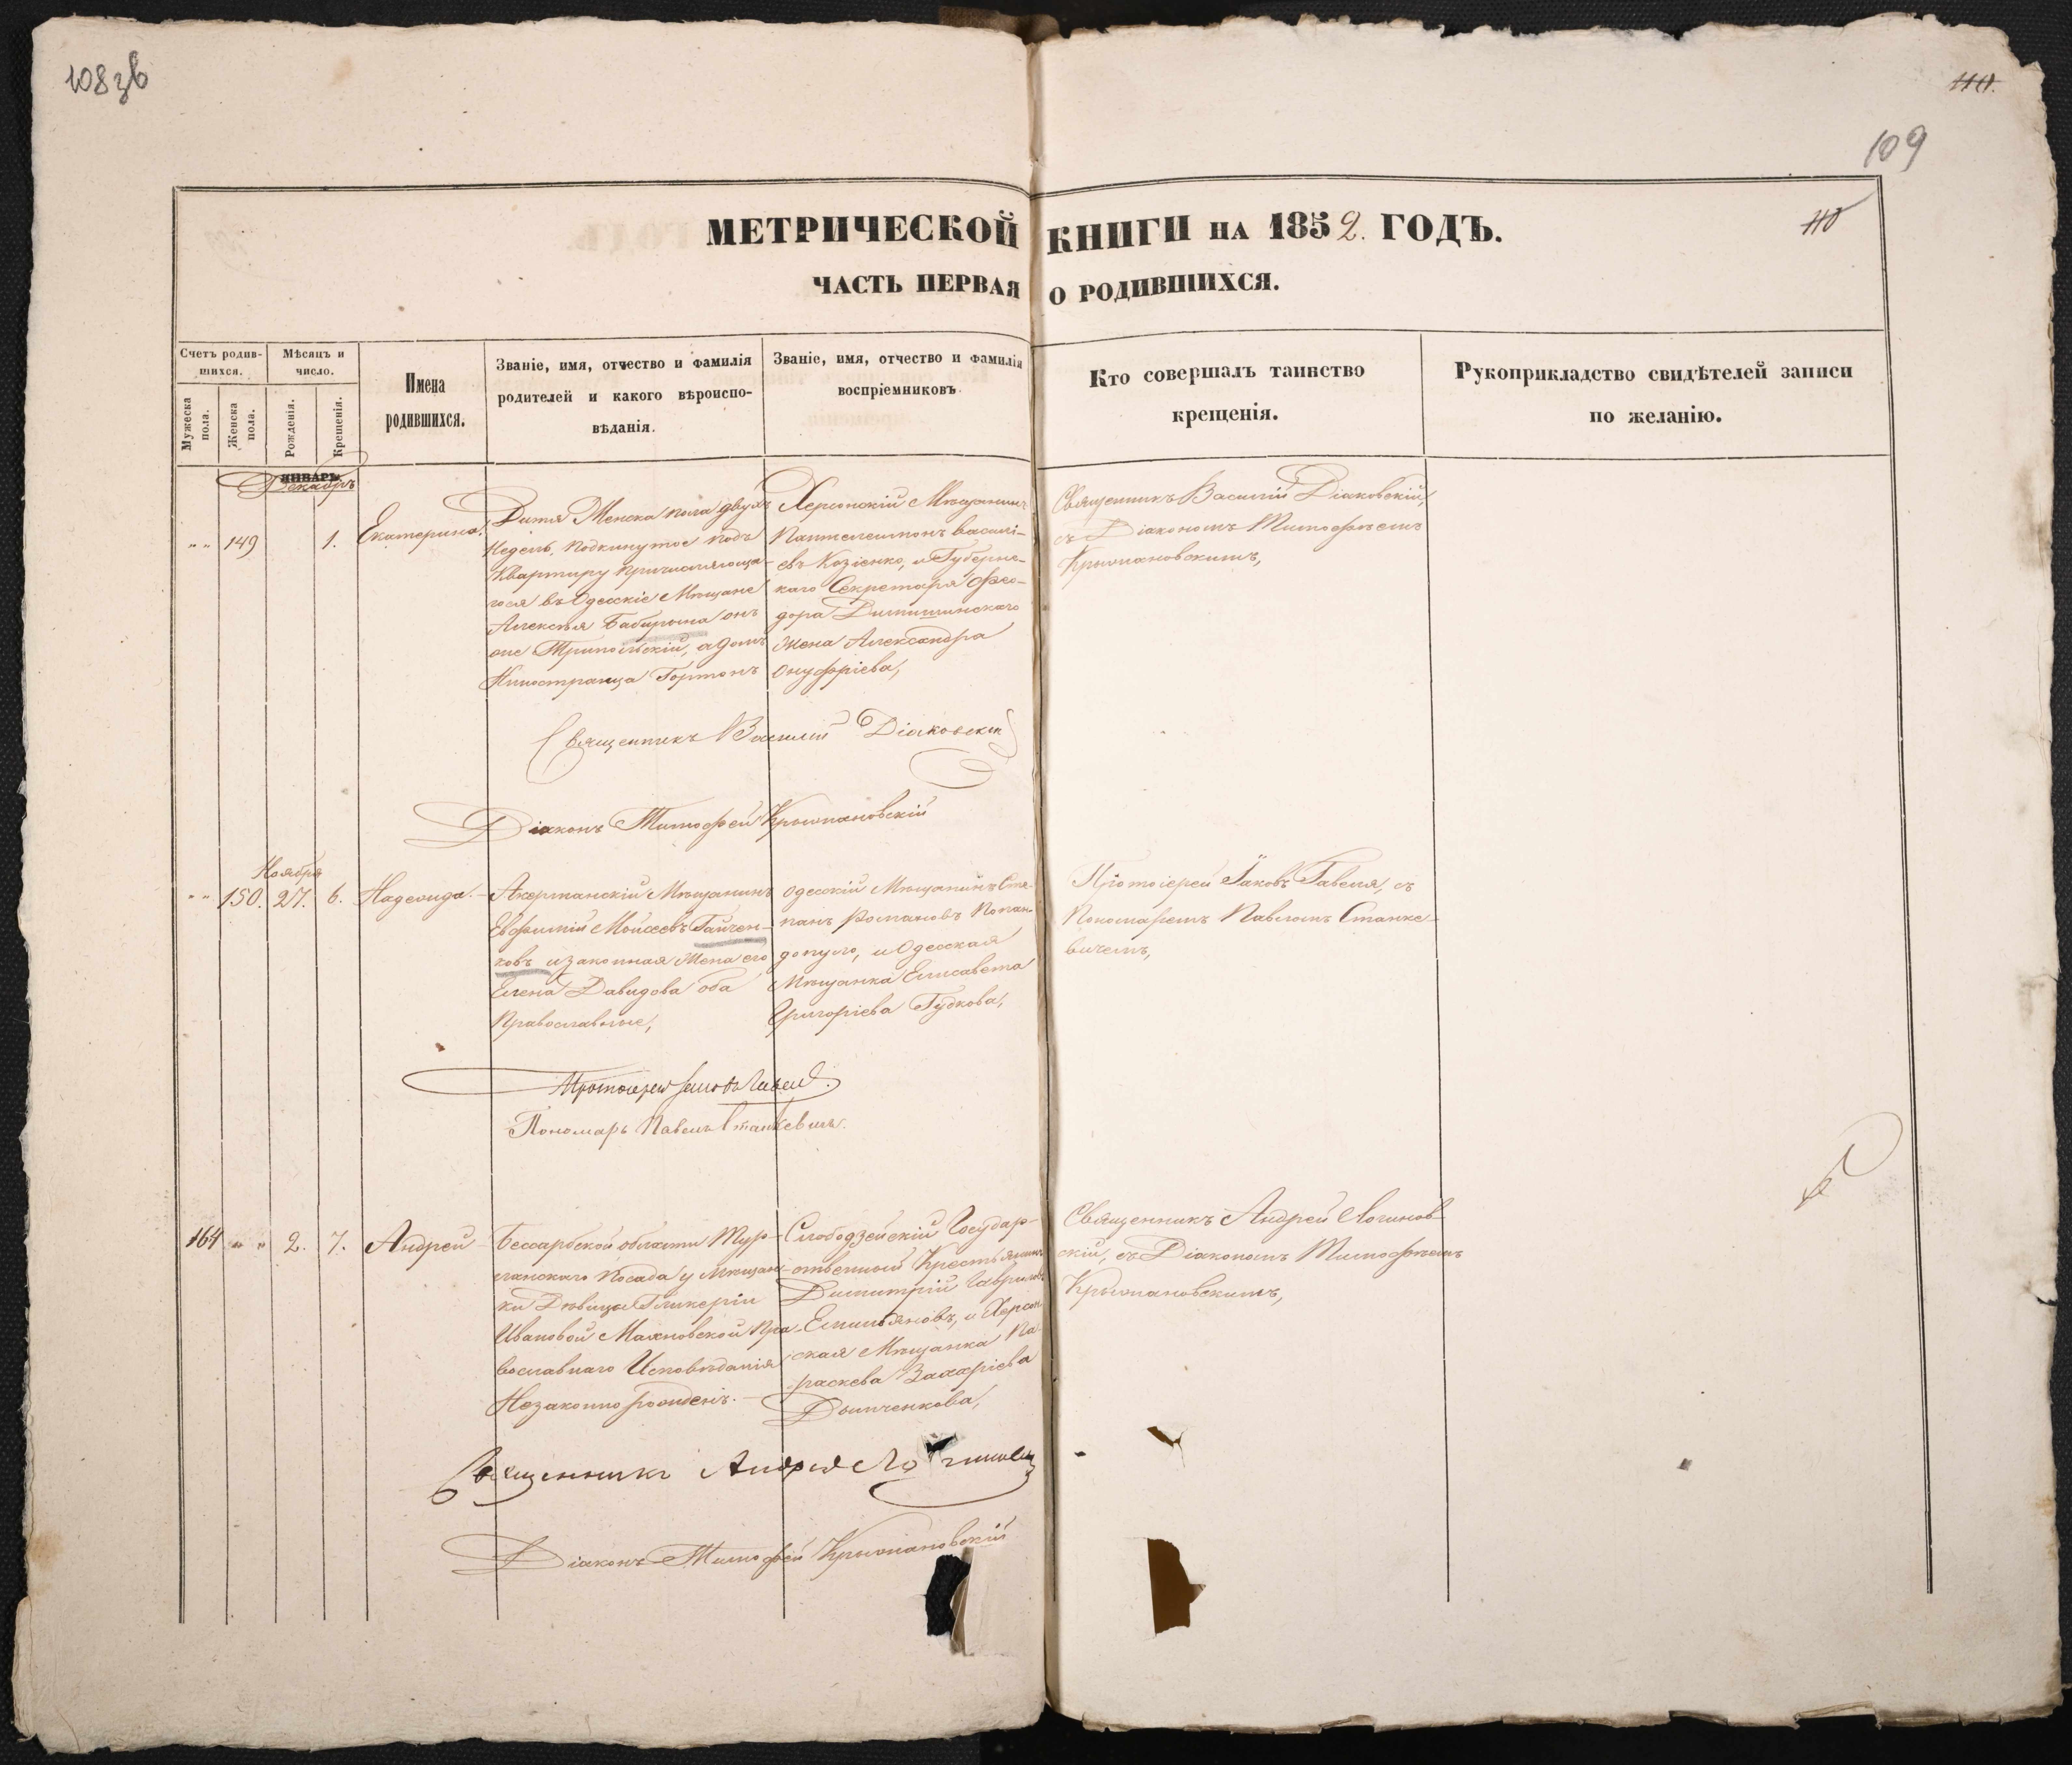 108 зв
110.
109
110
МЕТРИЧЕСКОЙ КНИГИ НА 1852. ГОДЪ.
ЧАСТЬ ПЕРВАЯ О РОДИВШИХСЯ.
Счетъ родив-
шихся.
Мужеска
пола.
Женска
пола.
Мѣсяцъ и
число.
Рожденія.
Крещенія.
Имена
родившихся.
Званіе, имя, отчество и фамилія
родителей и какого вѣроиспо-
вѣданія.
Званіе, имя, отчество и фамилія
воспріемниковъ.
Кто совершалъ таинство
крещенія.
Рукоприкладство свидѣтелей записи
по желанію.
ЯНВАРЬ.
Декабрь
" " 149 1. Екатерина.
Дитя Женска пола двухъ
недель, подкинутое подъ
квартиру причисляюща-
гося въ Одесскіе Мещане
Алексѣя Бабырына онъ
оне Трипольскій, а домъ
Иностранца Гортонъ
Херсонскій Мѣщанинъ
Пантелеимонъ Василі-
евъ Козіенко, и Губернс-
каго Секретаря Фео-
дора Димишинскаго
жена Александра
Онуфріева,
Священникъ Василій Діаковскій,
съ Діакономъ Тимофѣемъ
Крыжановскимъ,
Священникъ Василій Діаковскій
Діаконъ Тимофей Крыжановскій
Ноября
" " 150. 27. 6. Надежда.
Акерманскій Мѣщанинъ
Евфимій Моисеевъ Гайчен-
ковъ и законная жена его
Елена Давидова оба
Православные,
Одесскій Мѣщанинъ Сте-
панъ Романовъ Попан-
допуло, и Одесская
Мѣщанка Елисавета
Григоріева Гудкова,
Протоіерей Іаковъ Гавеля, съ
Пономаремъ Павломъ Станке-
вичемъ,
Протоіерей Іаковъ Гавеля.
Пономарь Павелъ Станкевичъ.
164 " " 2. 7. Андрей
Бессарбской области Тур-
ланскаго Посада у мѣщан-
ки Дѣвицы Гликеріи
Ивановой Маяновской Пра-
вославнаго Исповѣданія
Незаконно рожденъ.
Слободзейскій Государ-
ственный Крестьянинъ
Димитрій Гавриловъ
Емильяновъ, и Херсон-
ская Мѣщанка Па-
раскева Захаріева
Дьинченкова,
Священникъ Андрей Логинов-
скій, съ Діакономъ Тимофѣемъ
Крыжановскимъ,
Священникъ Андрей Логиновскій
Діаконъ Тимофей Крыжановскій